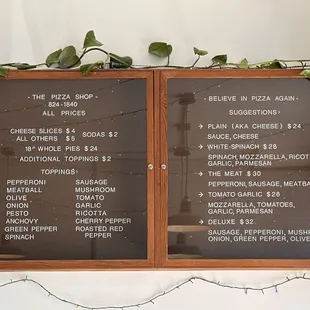 - THE PIZZA SHOP -
824-1840
ALL PRICES
CHEESE SLICES $4
ALL OTHERS $5
SODAS $2
18" WHOLE PIES $24
ADDITIONAL TOPPINGS $2
TOPPINGS:
PEPPERONI SAUSAGE
MEATBALL MUSHROOM
OLIVE TOMATO
ONION GARLIC
PESTO RICOTTA
ANCHOVY CHERRY PEPPER
GREEN PEPPER ROASTED RED
SPINACH PEPPER
- BELIEVE IN PIZZA AGAIN -
SUGGESTIONS:
→ PLAIN (AKA CHEESE) $24
SAUCE, CHEESE
→ WHITE-SPINACH $28
SPINACH, MOZZARELLA, RICOT
GARLIC, PARMESAN
→ THE MEAT $30
PEPPERONI, SAUSAGE, MEATBA
→ TOMATO GARLIC $28
MOZZARELLA, TOMATOES,
GARLIC, PARMESAN
→ DELUXE $32
SAUSAGE, PEPPERONI, MUSH
ONION, GREEN PEPPER, OLIVE